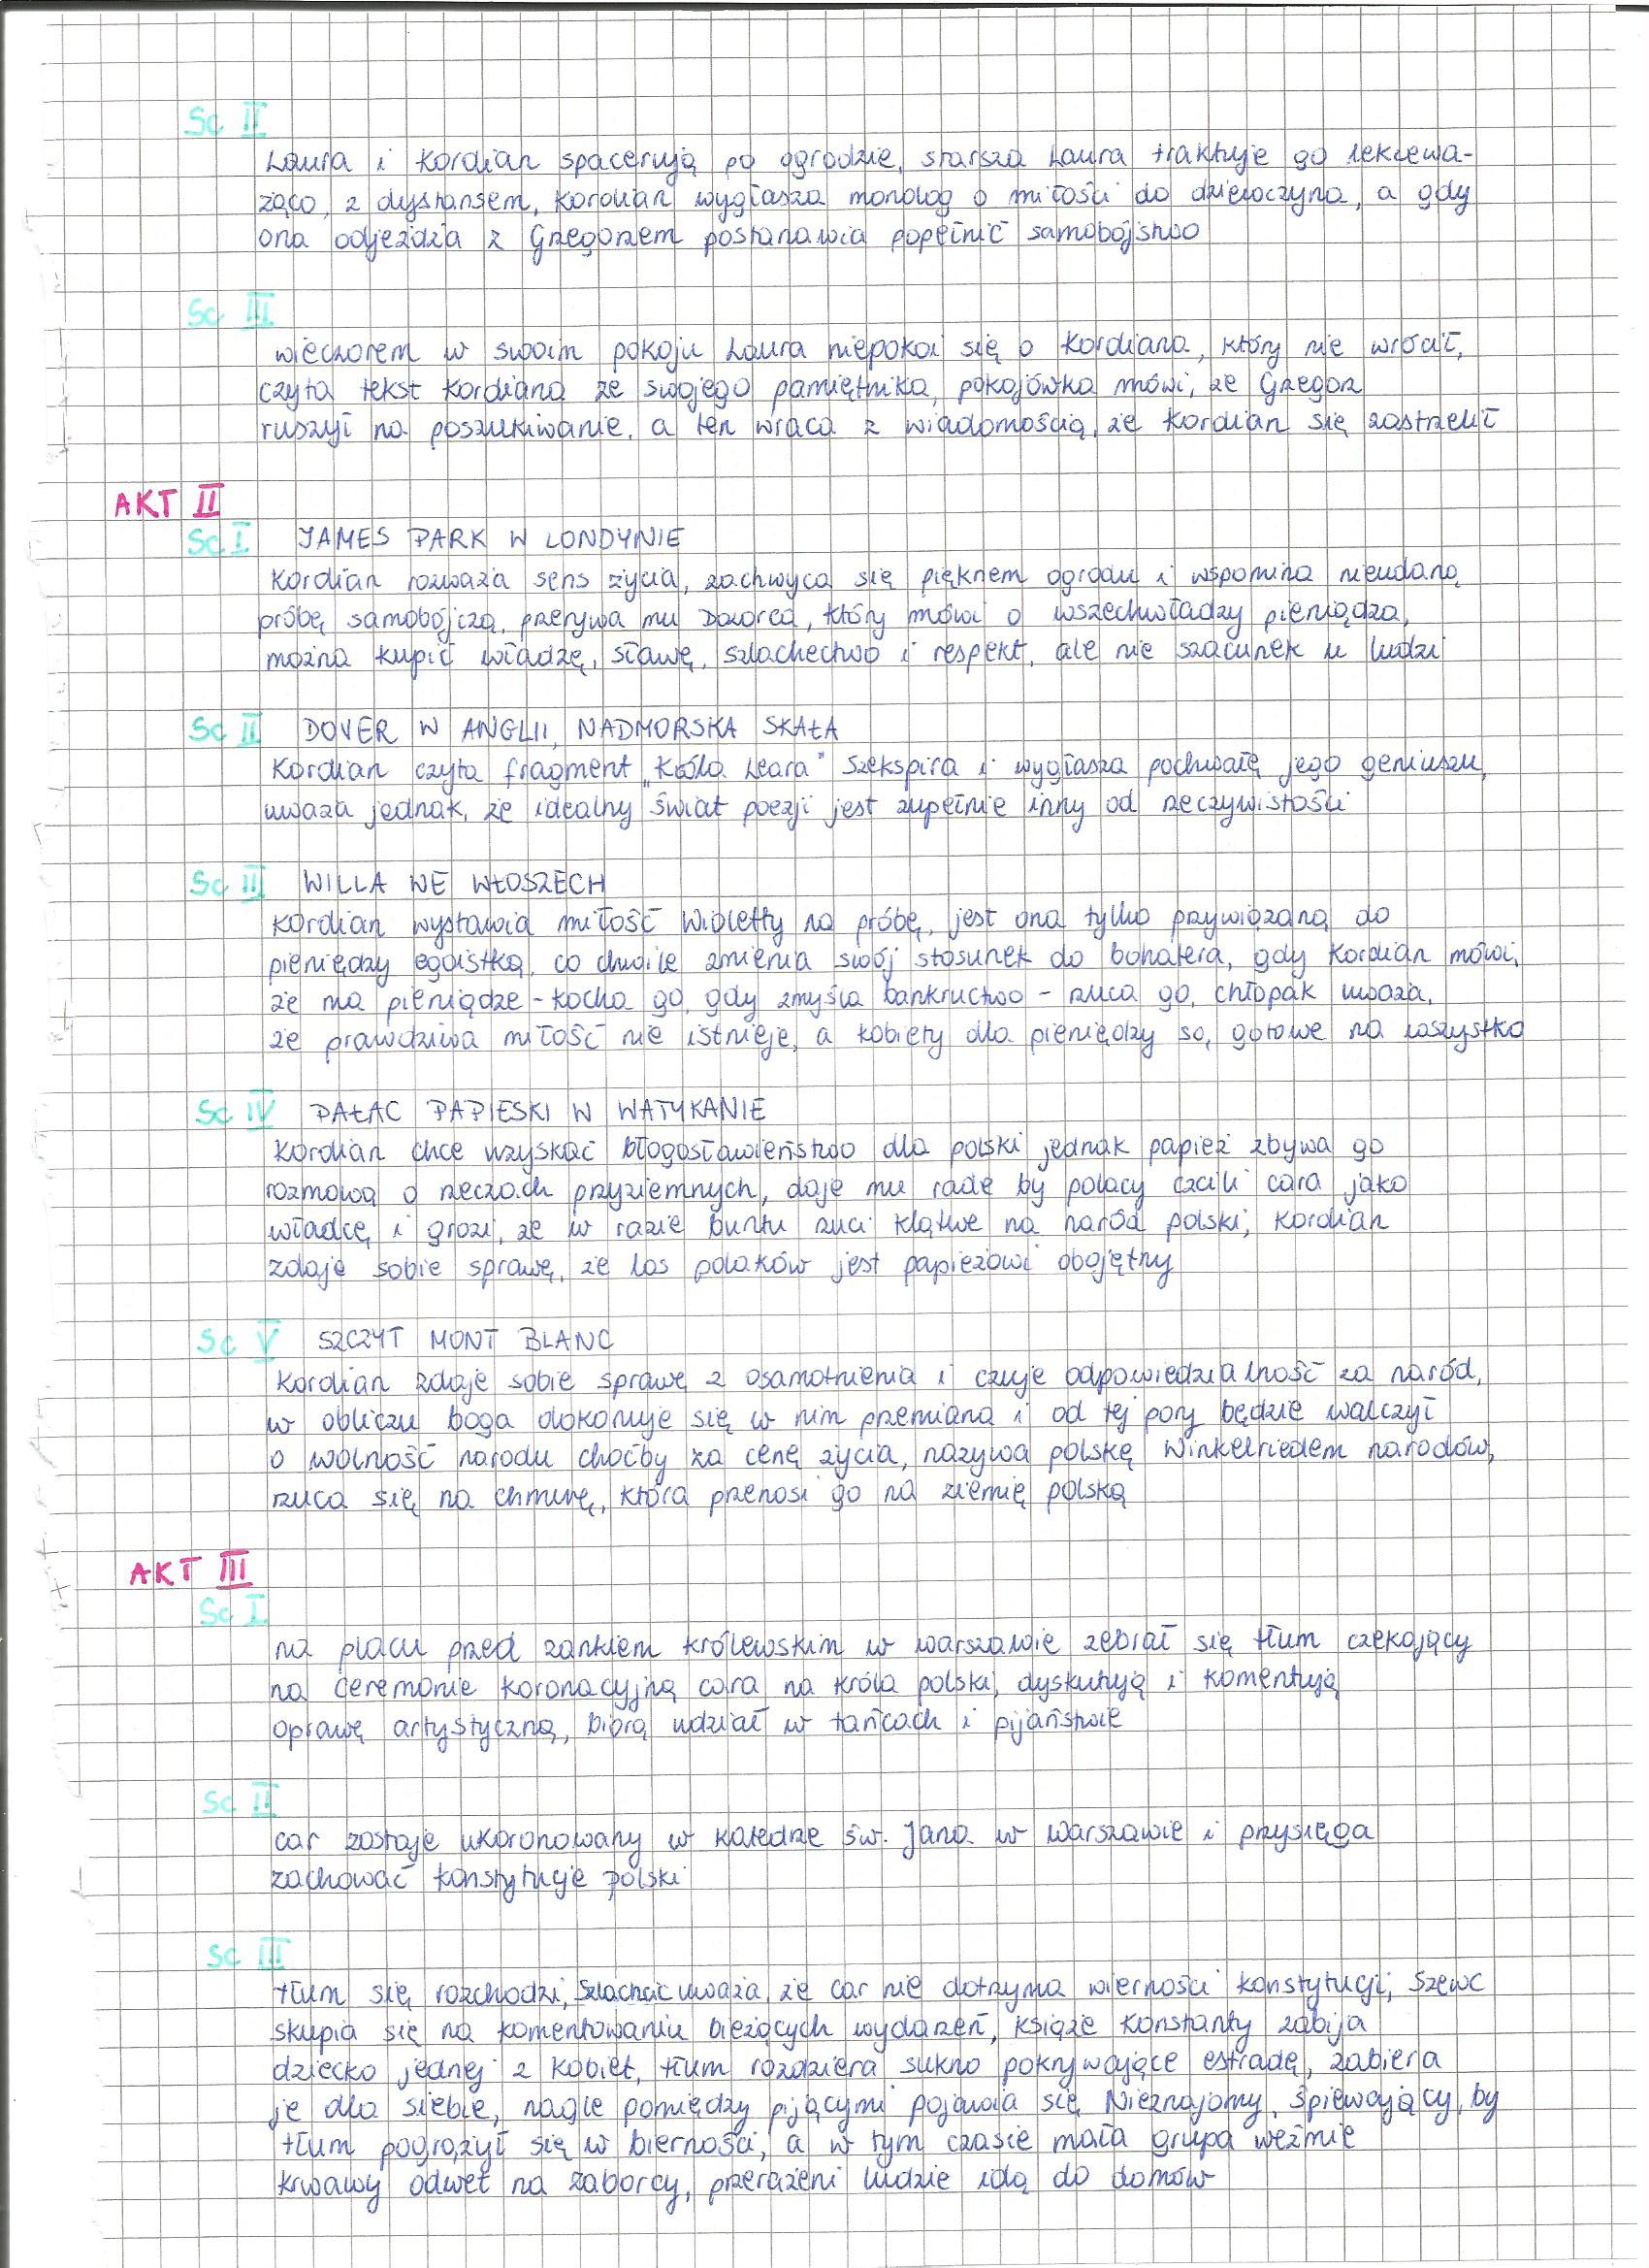 Sc II
Laura i Kordian spacerują po ogrodzie, starsza Laura traktuje go lekcewa-
żąco, z dystansem, Kordian wygłasza monolog o miłości do dziewczyna, a gdy
ona odjeżdża z Grzegorzem postanawia popełnić samobójstwo
Sc III
wieczorem w swoim pokoju Laura niepokoi się o Kordiana, który nie wrócił,
czyta tekst Kordiana ze swojego pamiętnika, pokojówka mówi, że Grzegorz
ruszył na poszukiwanie, a ten wraca z wiadomością, że Kordian się zastrzelił
AKT II
Sc I JAMES PARK W LONDYNIE
Kordian rozważa sens życia, zachwyca się pięknem ogrodu i wspomina nieudaną
próbę samobójczą, przerywa mu Dozorca, który mówi o wszechwładzy pieniądza,
można kupić władzę, sławę, szlachectwo i respekt, ale nie szacunek u ludzi
Sc II DOVER W ANGLII, NADMORSKA SKAŁA
Kordian czyta fragment „Króla Leara" Szekspira i wygłasza pochwałę jego geniuszu,
uważa jednak, że idealny świat poezji jest zupełnie inny od rzeczywistości
Sc III WILLA WE WŁOSZECH
Kordian wystawia miłość Wioletty na próbę, jest ona tylko przywiązaną do
pieniędzy egoistką, co chwile zmienia swój stosunek do bohatera, gdy Kordian mówi,
że ma pieniądze - kocha go, gdy zmyśla bankructwo - rzuca go, chłopak uważa,
że prawdziwa miłość nie istnieje, a kobiety dla pieniędzy są gotowe na wszystko
Sc IV PAŁAC PAPIESKI W WATYKANIE
Kordian chce uzyskać błogosławieństwo dla polski jednak papież zbywa go
rozmową o rzeczach przyziemnych, daje mu rade by polacy czcili cara jako
władcę i grozi, że w razie buntu rzuci klątwe na naród polski, Kordian
zdaje sobie sprawę, że los polaków jest papieżowi obojętny
Sc V SZCZYT MONT BLANC
Kordian zdaje sobie sprawę z osamotnienia i czuje odpowiedzialność za naród,
w obliczu boga dokonuje się w nim przemiana i od tej pory będzie walczył
o wolność narodu choćby za cenę życia, nazywa polskę Winkelriedem narodów,
rzuca się na chmurę, która przenosi go na ziemię polską
AKT III
Sc I
na placu przed zamkiem królewskim w warszawie zebrał się tłum czekający
na ceremonie koronacyjną cara na króla polski, dyskutują i komentują
oprawę artystyczną, biorą udział w tańcach i pijaństwie
Sc II
car zostaje ukoronowany w katedrze św. Jana w Warszawie i przysięga
zachować konstytucje polski
Sc III
tłum się rozchodzi, Szlachcic uważa, że car nie dotrzyma wierności konstytucji, Szewc
skupia się na komentowaniu bieżących wydarzeń, książe Konstanty zabija
dziecko jednej z kobiet, tłum rozdziera sukno pokrywające estradę, zabiera
je dla siebie, nagle pomiędzy pijącymi pojawia się Nieznajomy, śpiewający, by
tłum pogrążył się w bierności, a w tym czasie mała grupa weźmie
krwawy odwet na zaborcy, przerażeni ludzie idą do domów